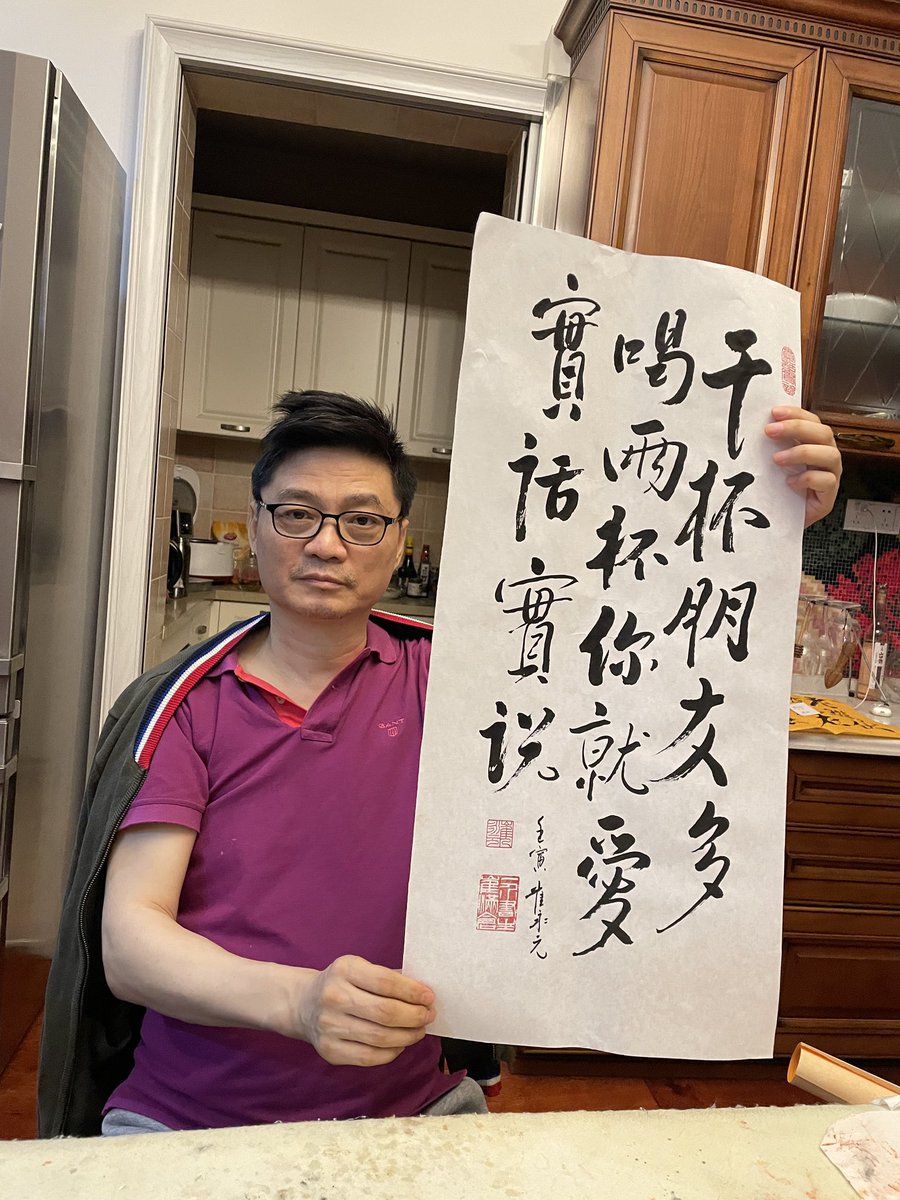 干杯朋友多
喝兩杯你就愛
實話實说
壬寅 崔永元
GANT